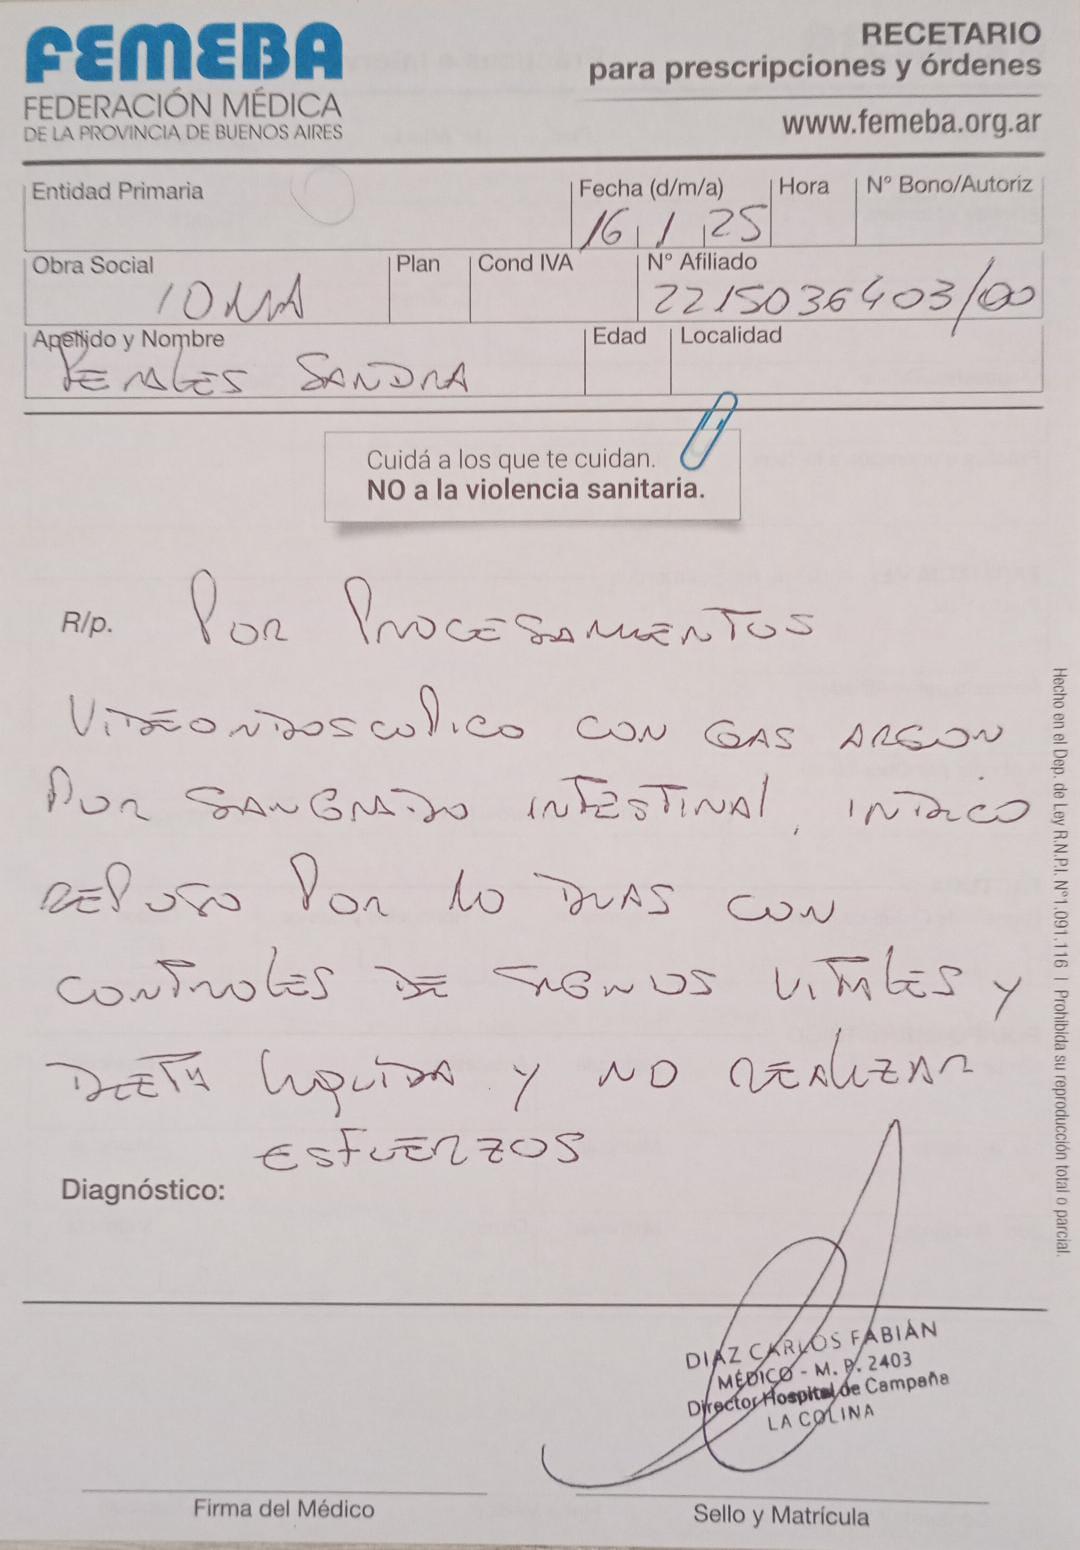 FEMEBA
FEDERACIÓN MÉDICA
DE LA PROVINCIA DE BUENOS AIRES
RECETARIO
para prescripciones y órdenes
www.femeba.org.ar
Entidad Primaria
Fecha (d/m/a)
Hora
N° Bono/Autoriz
16 1 25
Obra Social
Plan
Cond IVA
N° Afiliado
IOMA
2215036403/00
Apellido y Nombre
Edad
Localidad
PERALES SANDRA
Cuidá a los que te cuidan.
NO a la violencia sanitaria.
R/p. POR PROCESAMIENTOS
VIDEONDOSCOPICO CON GAS ARGON
POR SANGRADO INTESTINAL, INDICO
REPOSO POR 10 DIAS CON
CONTROLES DE SIGNOS VITALES Y
DIETA LIQUIDA Y NO REALIZAR
ESFUERZOS
Diagnóstico:
DIAZ CARLOS FABIÁN
MÉDICO - M. P. 2403
Director Hospital de Campaña
LA COLINA
Firma del Médico
Sello y Matrícula
Hecho en el Dep. de Ley R.N.P.I. N°1.091.116 | Prohibida su reproducción total o parcial.